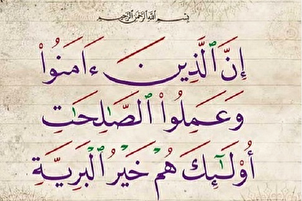 بِسْمِ اللَّهِ الرَّحْمَٰنِ الرَّحِيمِ
إِنَّ ٱلَّذِينَ ءَامَنُوا۟
وَعَمِلُوا۟ ٱلصَّـٰلِحَـٰتِ
أُو۟لَـٰٓئِكَ هُمْ خَيْرُ ٱلْبَرِيَّةِ